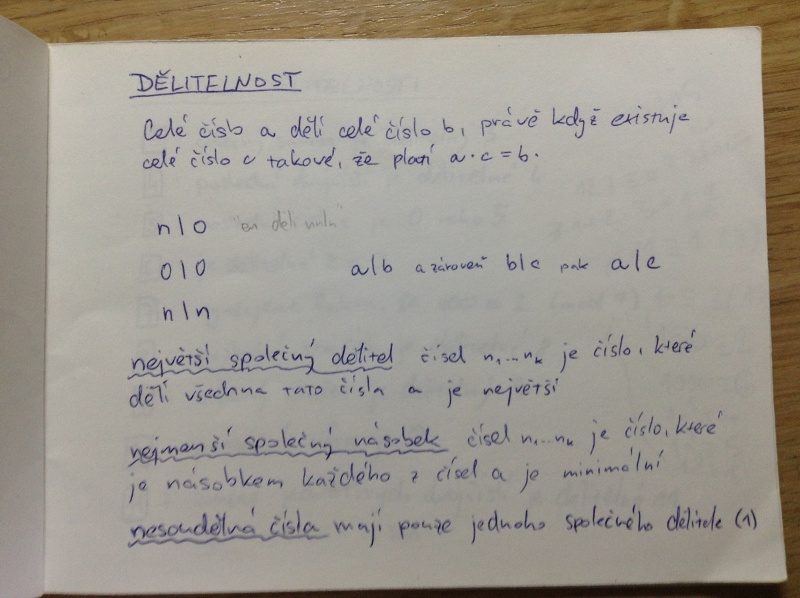 DĚLITELNOST
Celé číslo a dělí celé číslo b, právě když existuje
celé číslo c takové, že platí a·c = b.
n|0 "en dělí nulu"
0|0 a|b a zároveň b|c pak a|c
n|n
největší společný dělitel čísel n₁...nₖ je číslo, které
dělí všechna tato čísla a je největší
nejmenší společný násobek čísel n₁...nₖ je číslo, které
je násobkem každého z čísel a je minimální
nesoudělná čísla mají pouze jednoho společného dělitele (1)